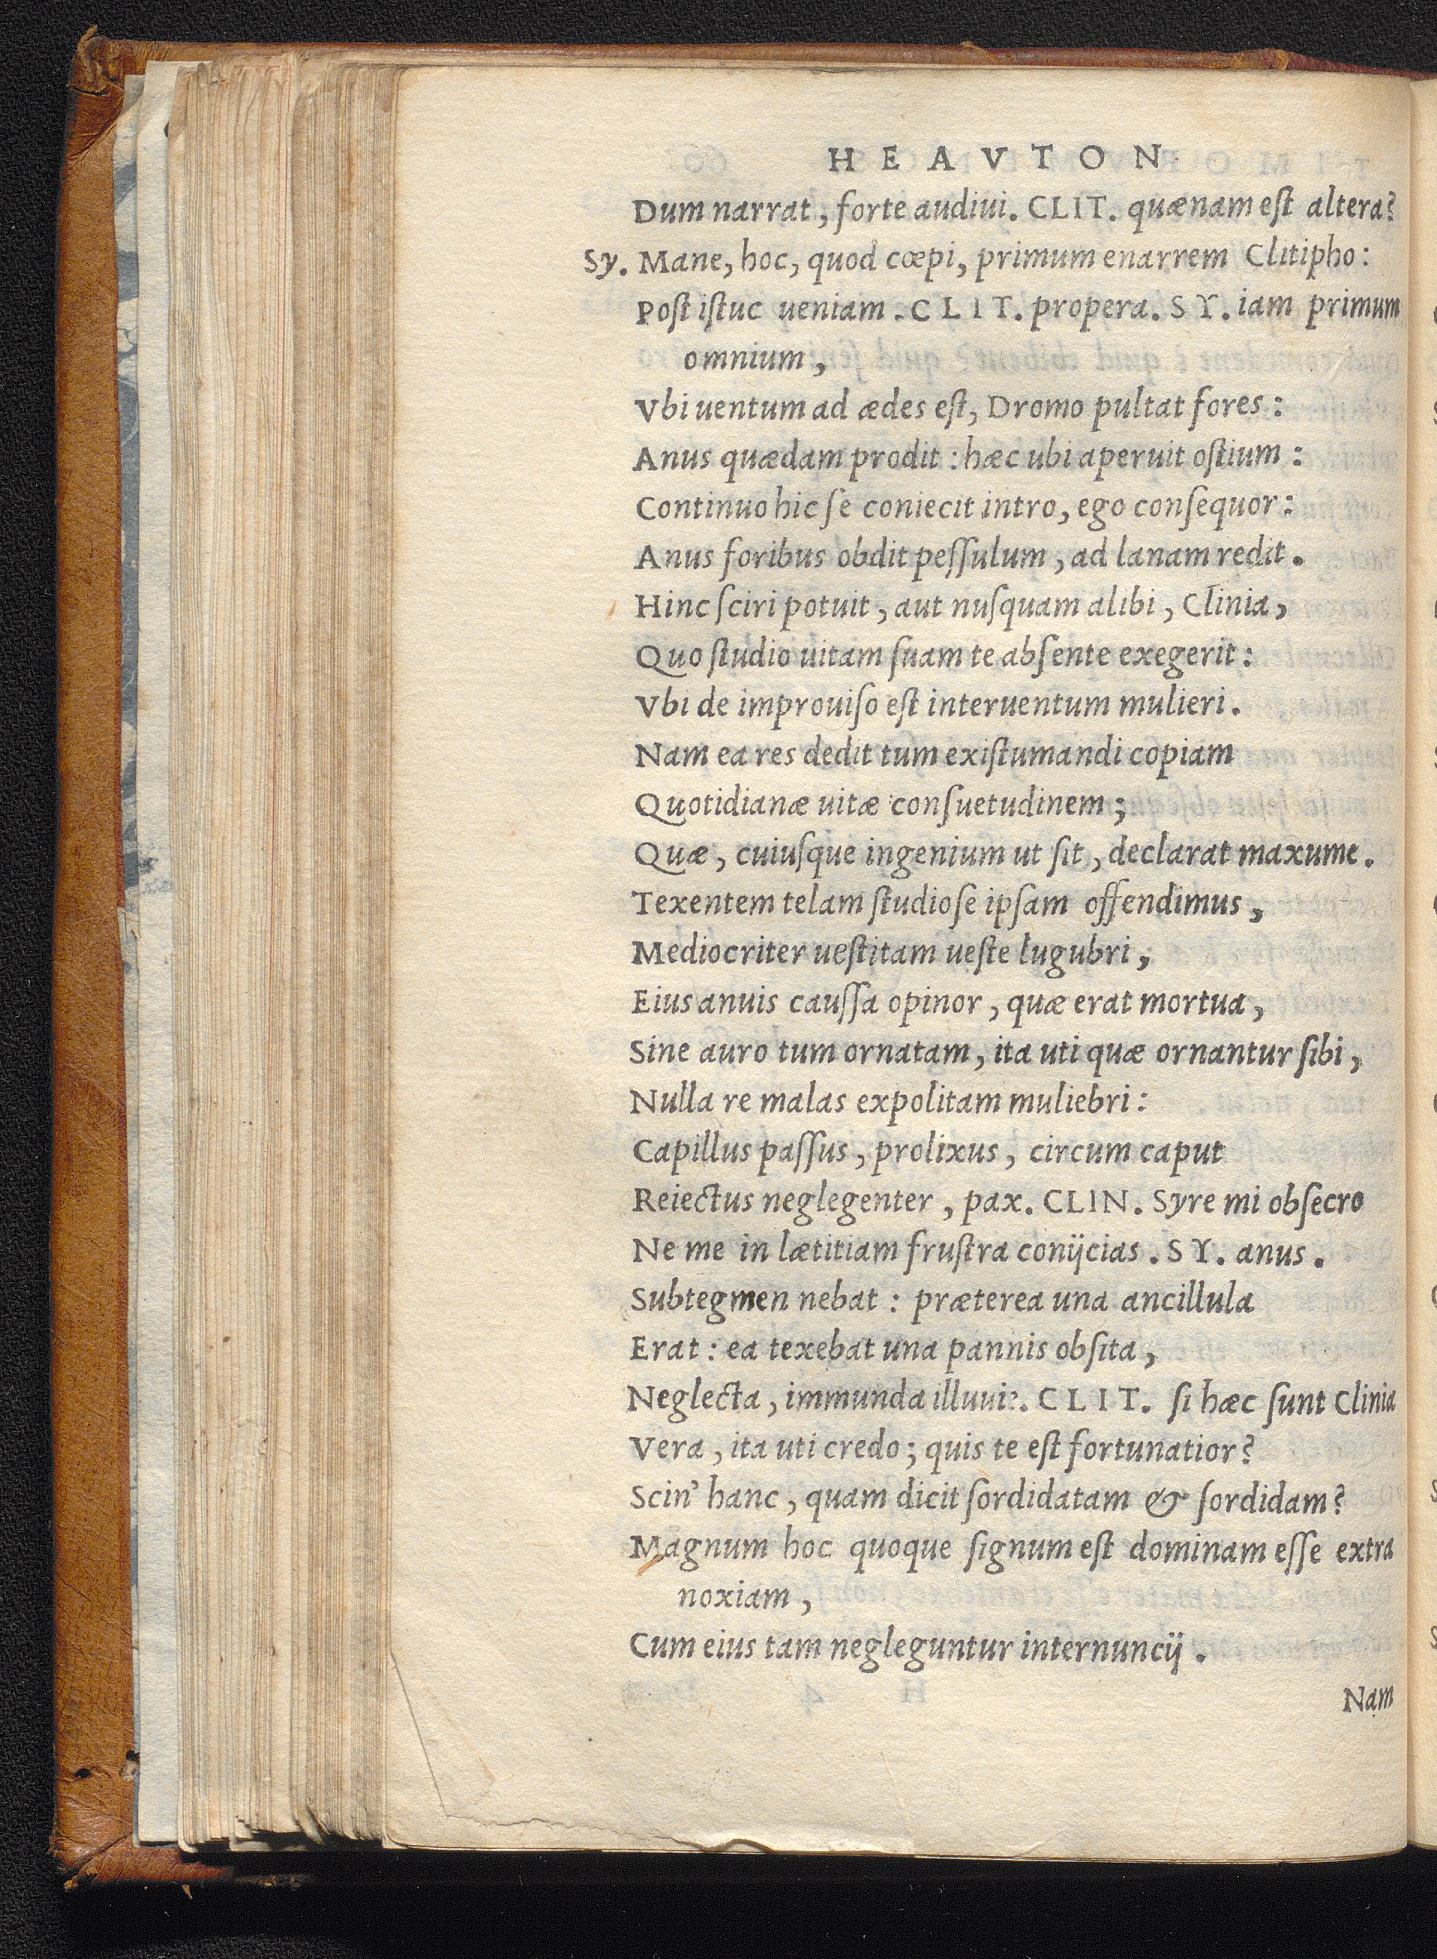 HEAVTON
Dum narrat, forte audiui. CLIT. quænam eſt altera?
Sy. Mane, hoc, quod cœpi, primum enarrem Clitipho:
Poſt iſtuc ueniam. CLIT. propera. SY. iam primum
omnium,
Vbi uentum ad ædes eſt, Dromo pultat fores:
Anus quædam prodit: hæc ubi aperuit oſtium:
Continuo hic ſe coniecit intro, ego conſequor:
Anus foribus obdit peſſulum, ad lanam redit.
Hinc ſciri potuit, aut nuſquam alibi, Clinia,
Quo ſtudio uitam ſuam te abſente exegerit:
Vbi de improuiſo eſt interuentum mulieri.
Nam ea res dedit tum exiſtumandi copiam
Quotidianæ uitæ conſuetudinem;
Quæ, cuiuſque ingenium ut ſit, declarat maxume.
Texentem telam ſtudioſe ipſam offendimus,
Mediocriter ueſtitam ueſte lugubri,
Eius anuis cauſſa opinor, quæ erat mortua,
Sine auro tum ornatam, ita uti quæ ornantur ſibi,
Nulla re malas expolitam muliebri:
Capillus paſſus, prolixus, circum caput
Reiectus neglegenter, pax. CLIN. Syre mi obſecro
Ne me in lætitiam fruſtra conijcias. SY. anus.
Subtegmen nebat: præterea una ancillula
Erat: ea texebat una pannis obſita,
Neglecta, immunda illuuie. CLIT. ſi hæc ſunt Clinia
Vera, ita uti credo; quis te eſt fortunatior?
Scin' hanc, quam dicit ſordidatam & ſordidam?
Magnum hoc quoque ſignum eſt dominam eſſe extra
noxiam,
Cum eius tam negleguntur internuncij.
Nam